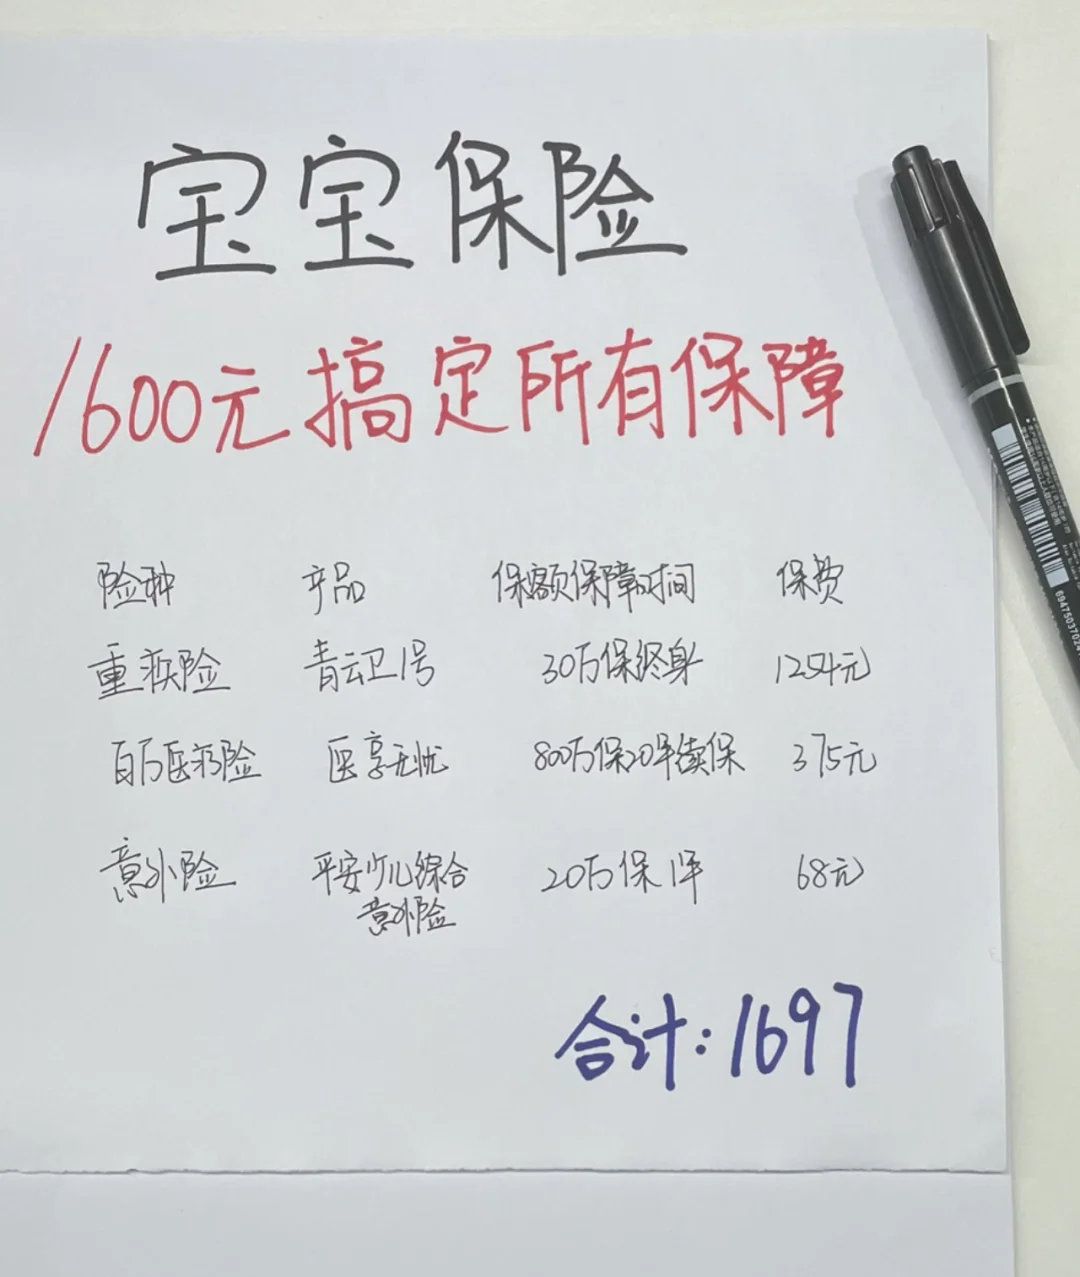 宝宝保险
1600元搞定所有保障
险种 产品 保额保障时间 保费
重疾险 青云卫1号 30万保终身 1254元
百万医疗险 医享无忧 800万保20年续保 375元
意外险 平安少儿综合 20万保1年 68元
意外险
合计:1697